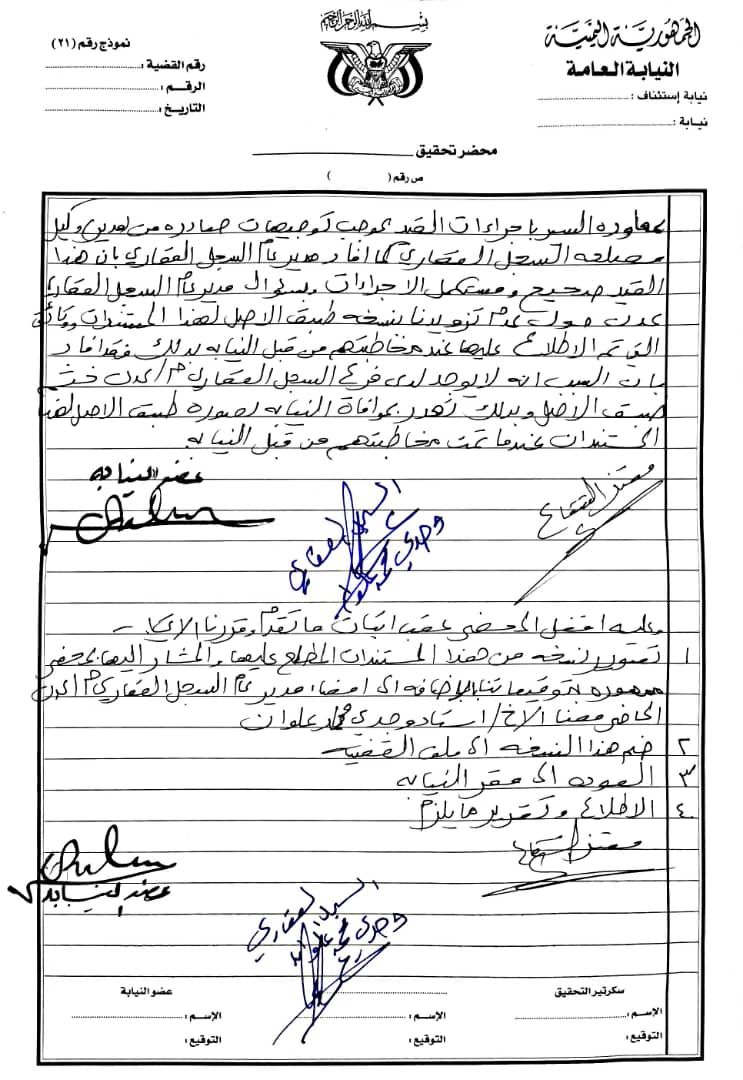 بسم الله الرحمن الرحيم
الجمهورية اليمنية
النيابة العامة
نيابة إستئناف :
نيابة :
نموذج رقم (٢١)
رقم القضية :
الرقم :
التاريخ :
محضر تحقيق
ص رقم ( )
بمعاوده السير باجراءات القيد بموجب توجيهات صادره من وكيل
مصلحه السجل العقاري كما افاد مدير عام السجل العقاري بان هذا
القيد صحيح ومستكمل الاجراءات وبسؤال مدير عام السجل العقاري
عدن حول عدم تزويدنا بنسخه طبق الاصل لهذا المستندات ووثائق
التي تم الاطلاع عليها عند مخاطبتهم من قبل النيابه بذلك فقد افاد
بان السبب انه لا يوجد لدى فرع السجل العقاري م/عدن ختم
طبق الاصل وبذلك تعذر بموافاة النيابه بصوره طبق الاصل لهذا
المستندات عندما تمت مخاطبتهم من قبل النيابه
عضو النيابه
السجل العقاري
وجدي محمد علوان
معتز
وعليه اقفل المحضر عقب اثبات ما تقدم وقررنا الاتي :-
١ تصوير نسخه من هذا المستندات المطلع عليها والمشار اليها بالمحضر
ممهوره بتوقيعاتنا بالإضافه الى امضاء مدير عام السجل العقاري م/عدن
الحاضر معنا الاخ / استاذ وجدي محمد علوان
٢ ضم هذا النسخه الى ملف القضيه
٣ العوده الى مقر النيابه
٤ الاطلاع وتقرير ما يلزم
معتز
عضو النيابه
السجل العقاري
وجدي محمد علوان
سكرتير التحقيق
عضو النيابة
الإسـم :
الإسـم :
الإسـم :
التوقيع :
التوقيع :
التوقيع :